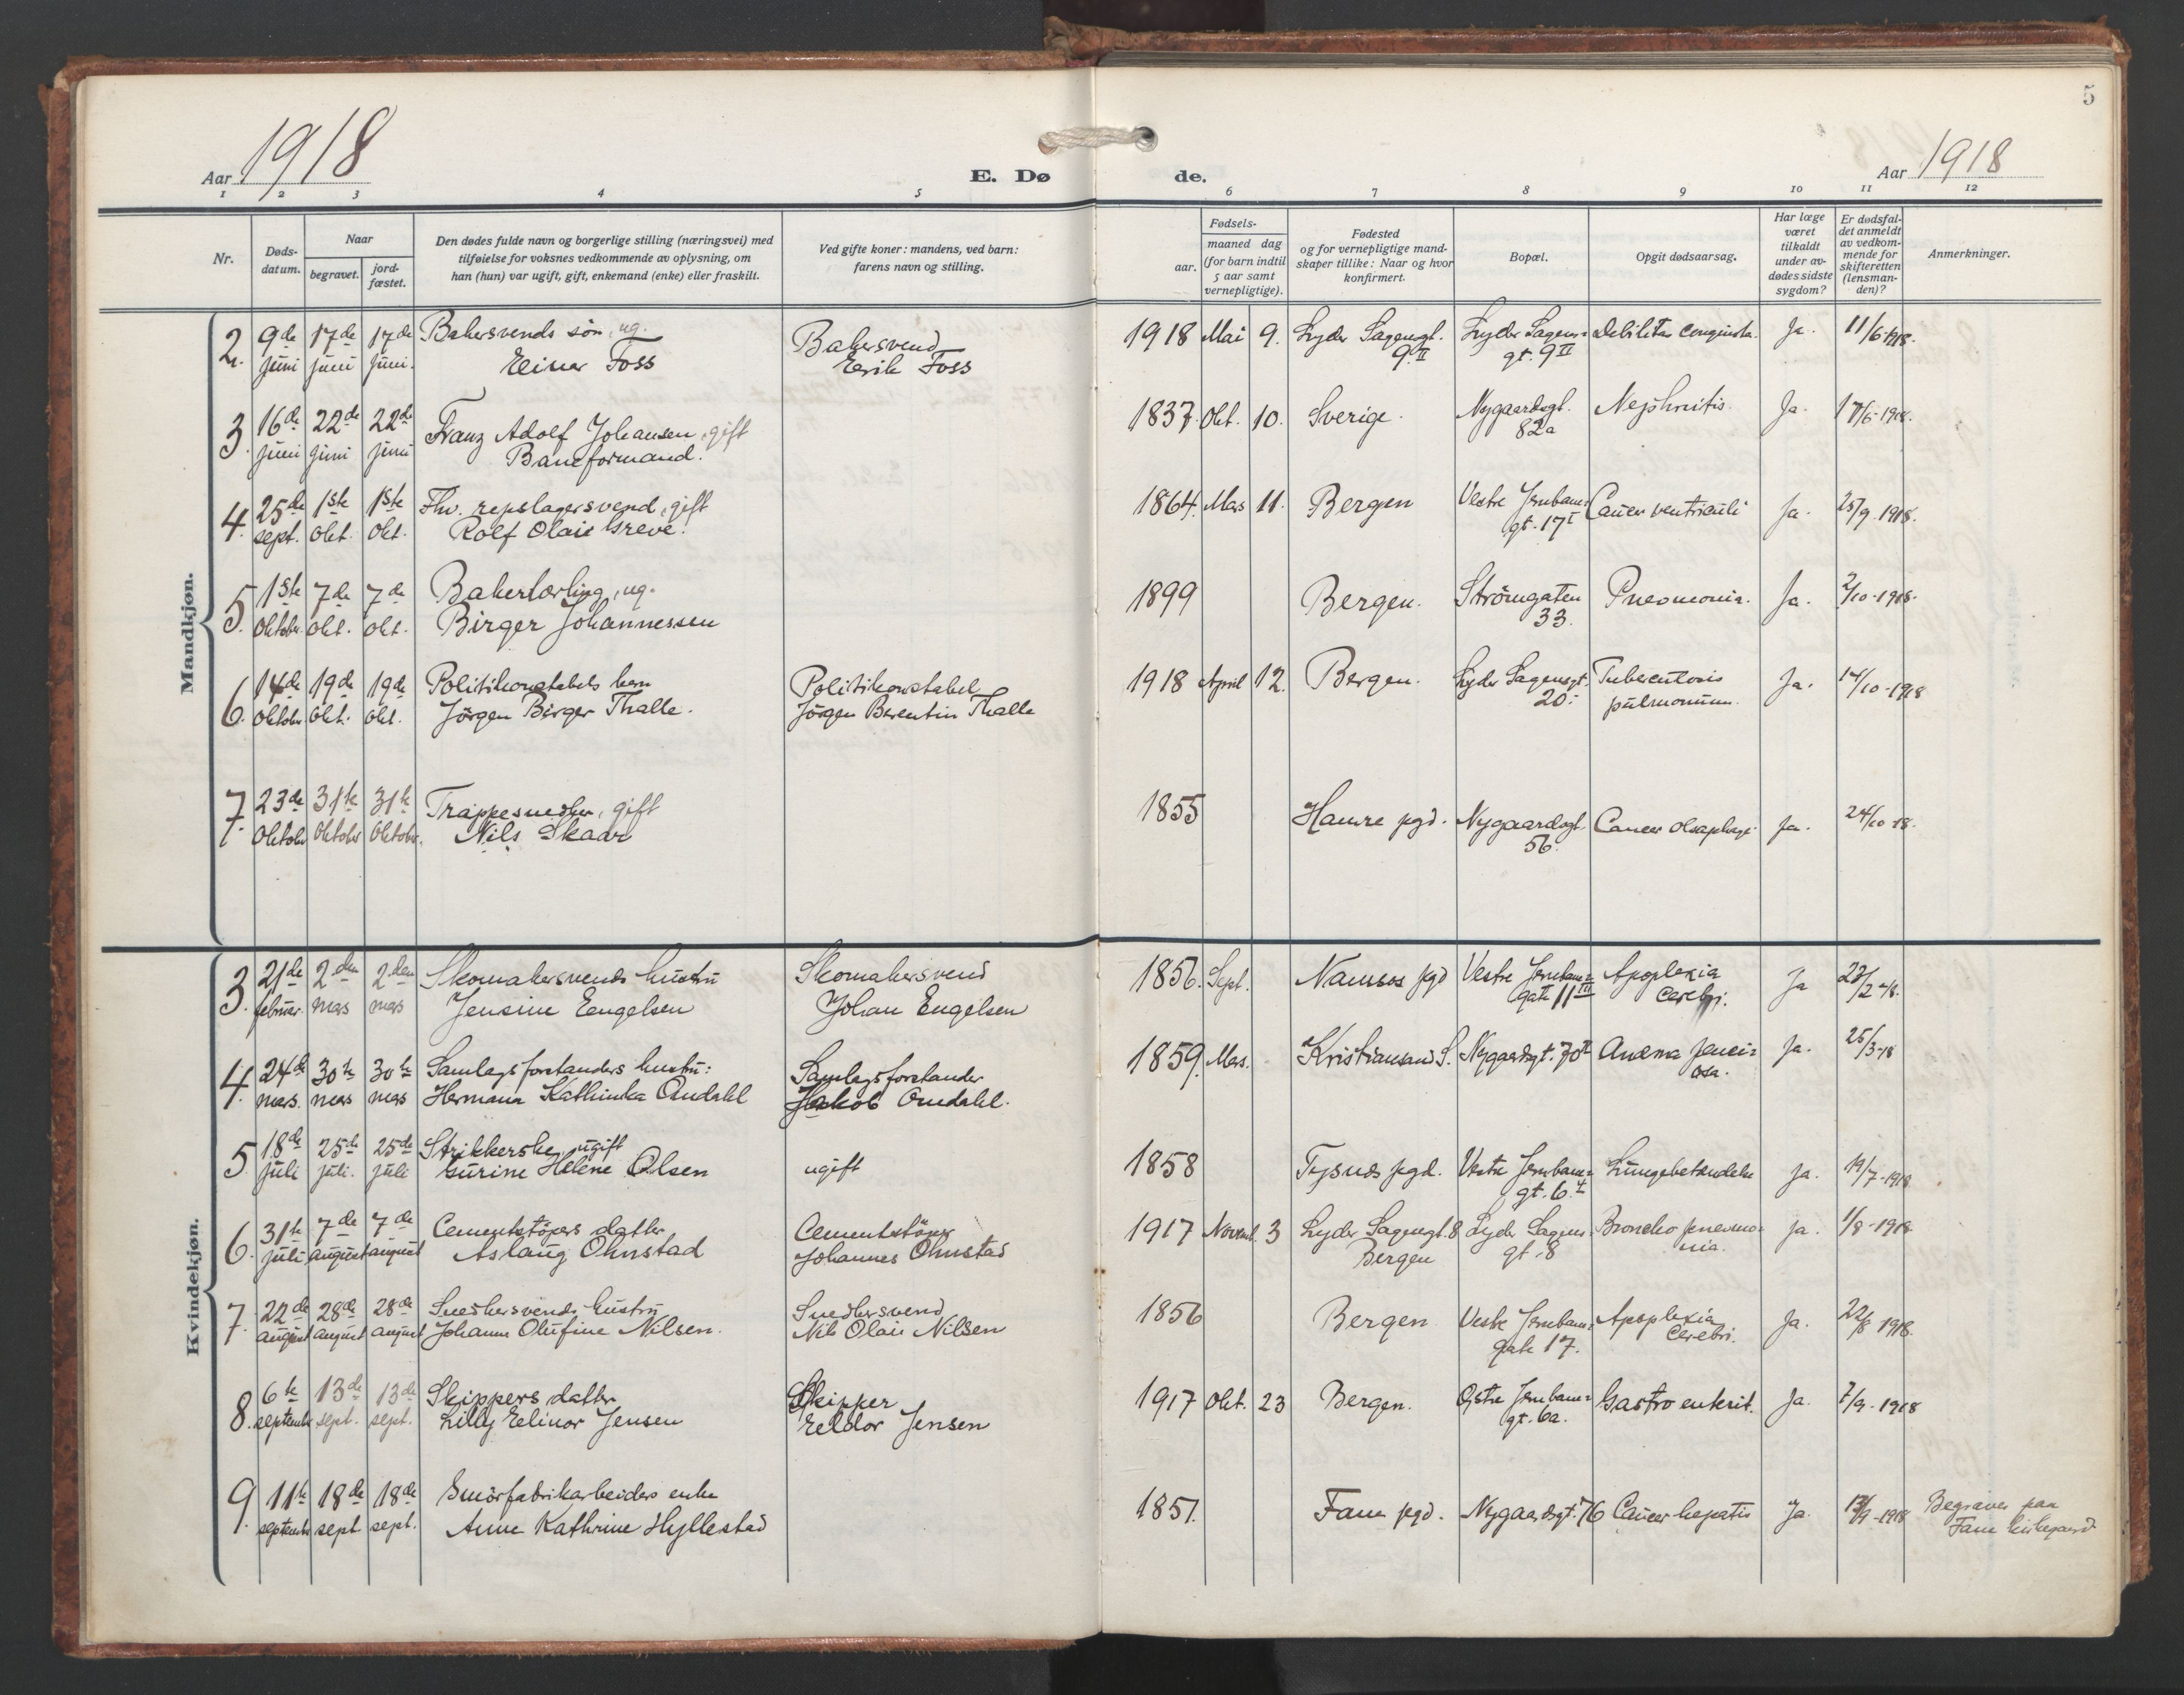 5
Aar 1918
E. Dø
de.
Aar 1918
1 2 3 4 5 6 7 8 9 10 11 12
Nr.
Døds-
datum.
Naar
begravet.
jord-
fæstet.
Den dødes fulde navn og borgerlige stilling (næringsvei) med
tilføielse for voksnes vedkommende av oplysning, om
han (hun) var ugift, gift, enkemand (enke) eller fraskilt.
Ved gifte koner: mandens, ved barn:
farens navn og stilling.
Fødsels-
aar.
maaned dag
(for barn indtil
5 aar samt
vernepligtige).
Fødested
og for vernepligtige mand-
skaper tillike: Naar og hvor
konfirmert.
Bopæl.
Opgit dødsaarsag.
Har læge
været
tilkaldt
under av-
dødes sidste
sygdom?
Er dødsfal-
det anmeldt
av vedkom-
mende for
skifteretten
(lensman-
den)?
Anmerkninger.
Mandkjøn.
2. 9de 17de 17de Bakersvends søn, ug. Bakersvend 1918 Mai 9. Lyder Sagensgt. Lyder Sagens= Debilitas Ja. 11/6-1918.
juni juni juni. Einar Foss Erik Foss 9.II gt. 9II
3. 16de 22de 22de Franz Adolf Johansen, gift 1837. Okt. 10. Sverige. Nygaardsgt. Nephritis. Ja. 17/6-1918.
juni juni juni Baneformand. 82a
4. 25de 1ste 1ste Fhv. repslagersvend, gift 1864. Mars 11. Bergen Vestre Jernbane= Cancer ventriculi Ja. 25/9-1918.
sept. Okt. Okt. Rolf Olai Greve. gt. 17I
5. 1ste 7de 7de Bakerlærling, ug. 1899 Bergen. Strömgaten Pneomonia. Ja. 2/10-1918.
Oktober Okt. Okt. Birger Johannessen 33.
6. 14de 19de 19de Politikonstabels barn Politikonstabel 1918 April 12. Bergen. Lyder Sagensgt. Tuberculosis Ja. 14/10-1918
Oktober Okt. Okt. Jörgen Birger Thalle. Jörgen Berentin Thalle 20. pulmonum.
7. 23de 31te 31te Trappesnedker, gift 1855 Hamre pgd. Nygaardsgt. Cancer Ja. 24/10-18.
Oktober Oktober Oktober. Nils Skaar 56.
Kvindekjøn.
3. 21de 2den 2den Skomakersvends hustru Skomakersvend 1856. Sept. Namsos pgd Vestre Jernbane= Apoplexia Ja 23/2-18.
februar mars mars Jensine Eengelsen Johan Engelsen gate 11III Cerebri.
4. 24de 30te 30te Samlagsforstanders hustru: Samlagsforstander 1859. Mars. Kristiansand S. Nygaardsgt. 70II Anæma Ja. 25/3-18
mars. mars mars Hermana Kathinka Omdahl Jakob Omdahl.
5. 18de 25de 25de Strikkerske, ugift ugift 1858 Tysnes pgd. Vestre Jernbane= Lungebetændelse Ja. 19/7-1918.
juli juli. juli Gurine Helene Olsen gt. 6.
6. 31te 7de 7de Cementstöpers datter Cementstöper 1917 Novemb. 3 Lyder Sagensgt. 8 Lyder Sagens= Broncho pneumo= Ja. 1/8-1918
juli august august Aslaug Ohnstad Johannes Ohnstad Bergen gt. 8 nia.
7. 22de 28de 28de Snedkersvends hustru Snedkersvend 1856 Bergen Vestre Jernbane= Apoplexia Ja. 22/8 1918.
august august august Johanne Olufine Nilsen. Nils Olai Nilsen gate 17. Cerebri.
8. 6te 13de 13de Skippers datter Skipper 1917 Okt. 23 Bergen. Østre Jernbane= Gastro enterit. Ja. 7/9-1918
september sept. sept. Lilly Eelinor Jensen Eeldor Jensen gt. 6a.
9. 11te 18de 18de Smörfabrikarbeiders enke 1851. Fane pgd. Nygaardsgt. 76 Cancer hepatis Ja. 13/9-1918 Begraves paa
september sept sept. Anne Kathrine Hyllestad Fane kirkegaard